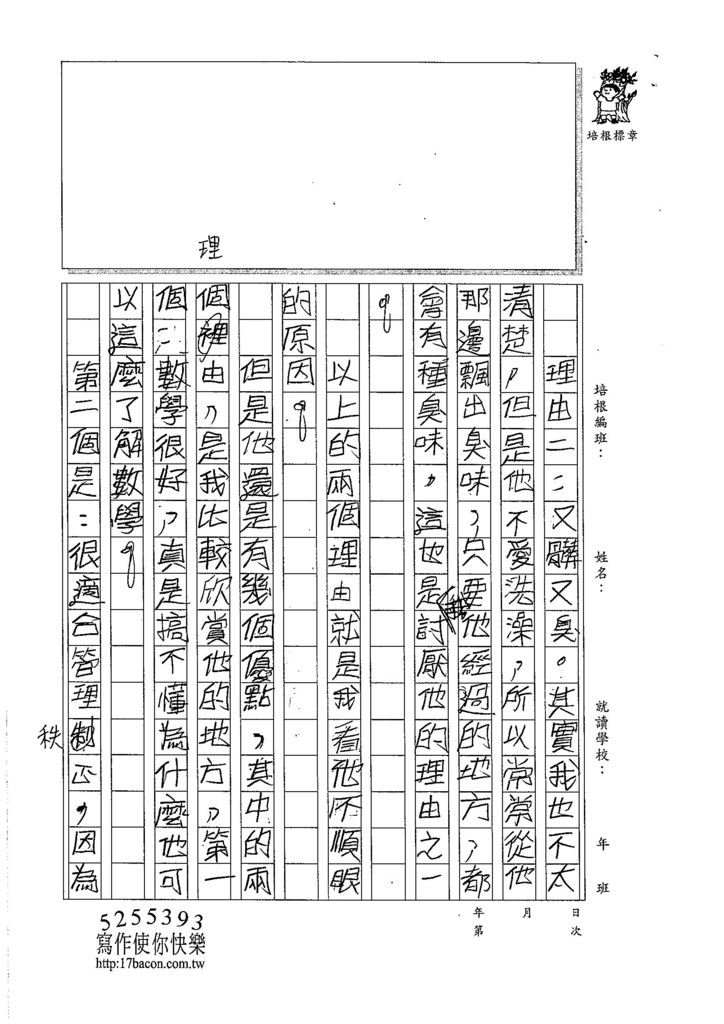 培根標章
培根編班：
姓名：
就讀學校：
年 班
年 月 日
第 次
理由二：又髒又臭。其實我也不太
清楚，但是他不愛洗澡，所以常常從他
那邊飄出臭味，只要他經過的地方，都
會有種臭味，這也是我討厭他的理由之一
。
以上的兩個理由就是我看他不順眼
的原因。
但是他還是有幾個優點，其中的兩
個理由，是我比較欣賞他的地方，第一
個：數學很好，真是搞不懂為什麼他可
以這麼了解數學。
第二個是：很適合管理秩
，因為
5255393
寫作使你快樂
http:17bacon.com.tw